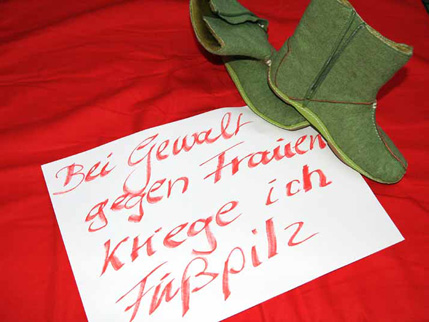 Bei Gewalt
gegen Frauen
Kriege ich
Fußpilz